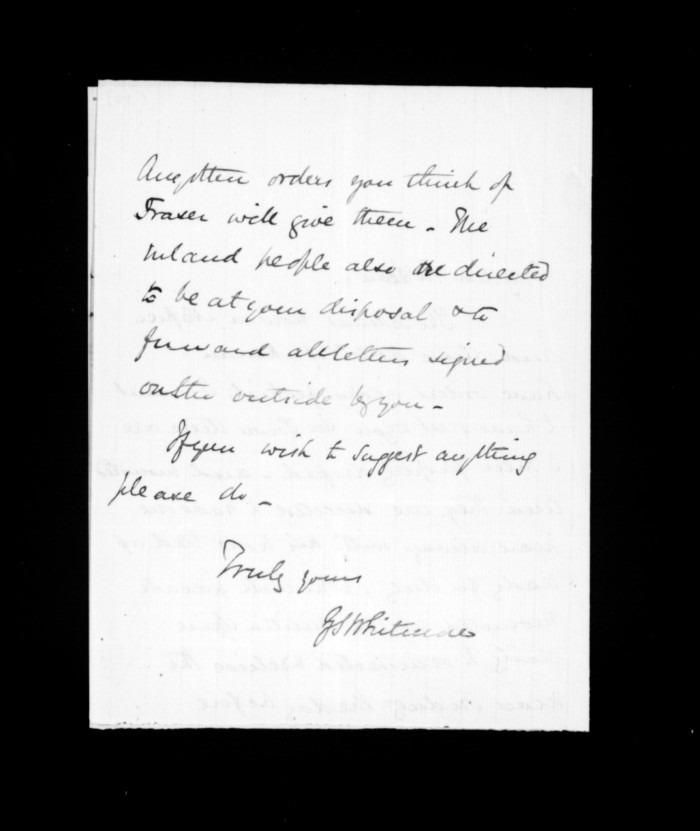 Any other orders you think of
Fraser will give them - The
inland people also are directed
to be at your disposal & to
forward all letters signed
on the outside by you -
If you wish to suggest anything
please do -
Truly yours
GSWhitmore